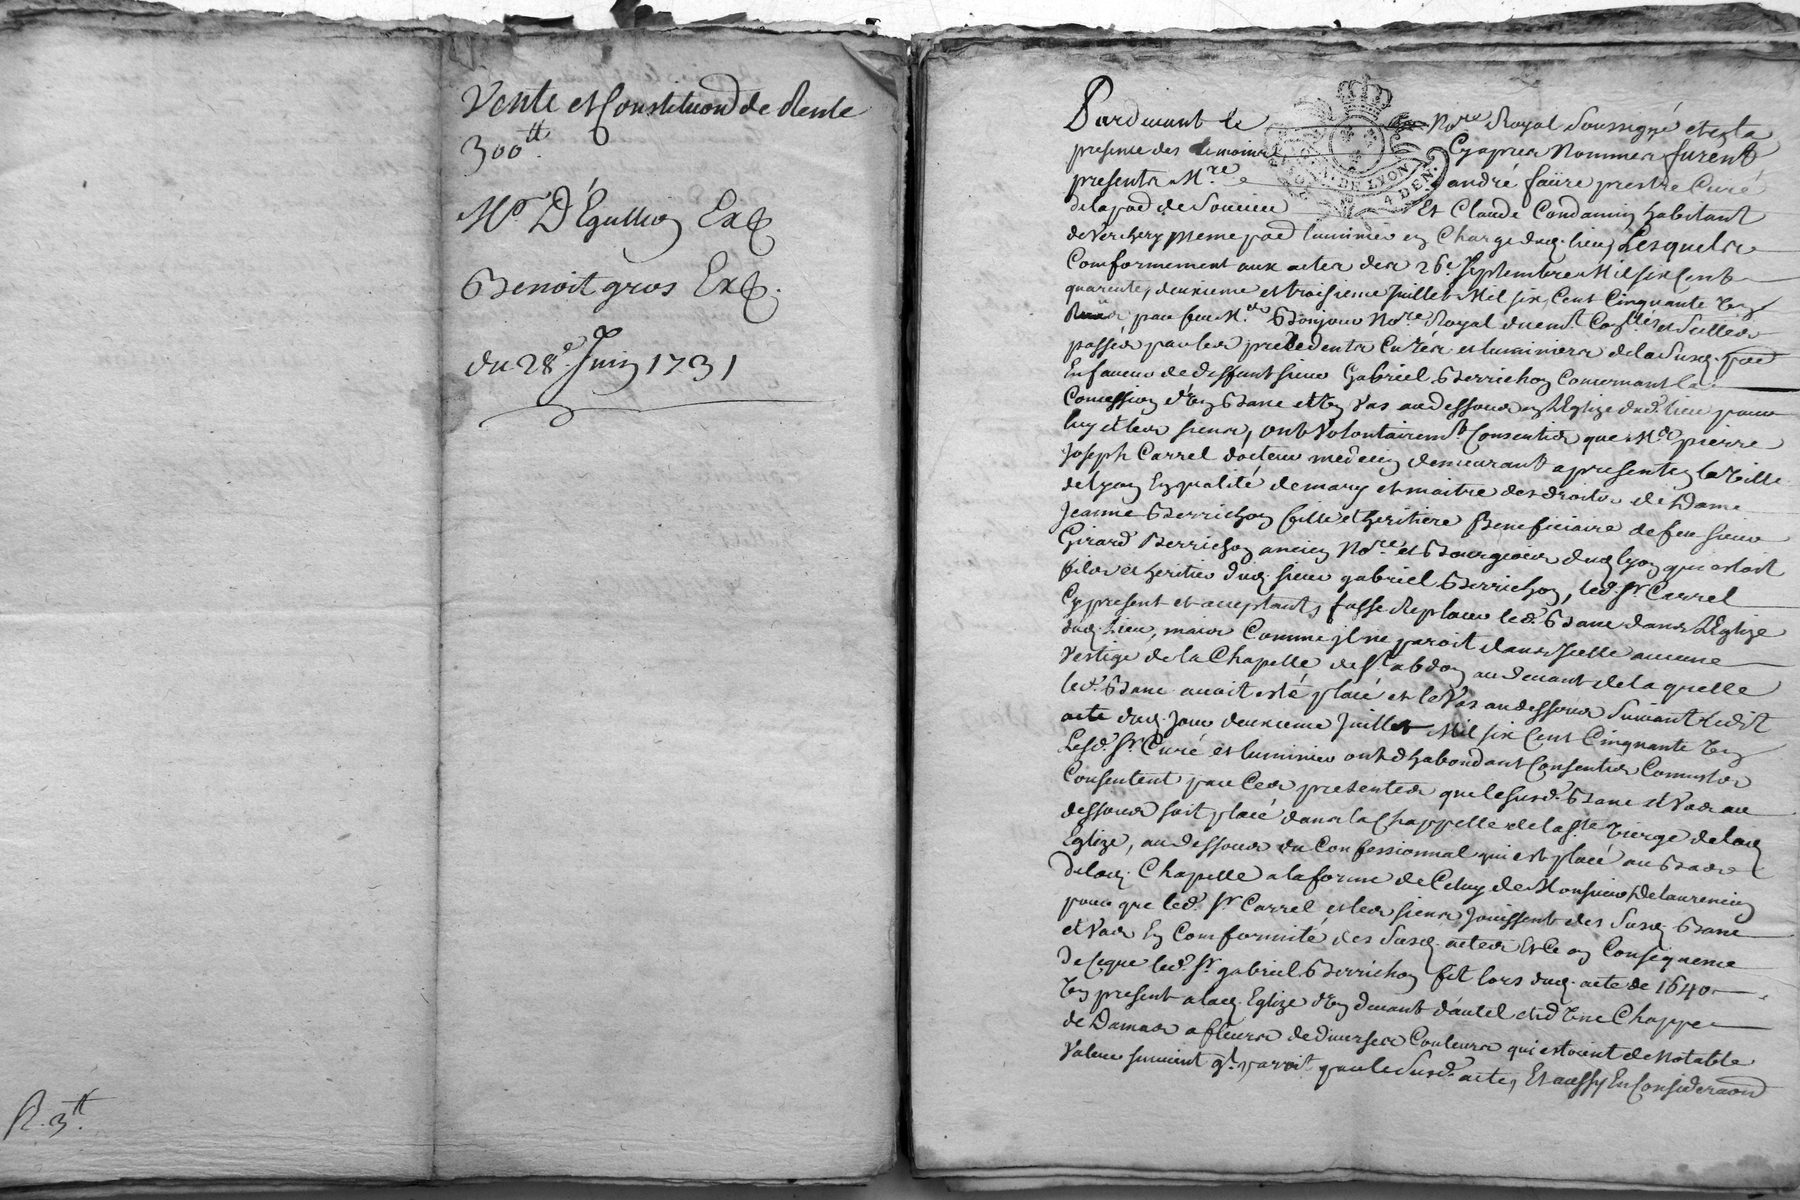 Vente et Constituon de Rente
300tt
Mr D'Eguillon Exp
Benoit gros Exp.
du 28e Juin 1731
R. 3tt.
Pardevant le Nore Royal Soussigné et en la
presence des temoins Cy apres Nommes furent
presents Mre andré faure prestre Curé
de la paed de Soucieu Et Claude Condamin habitant
de Verchery meme paed luminier en Charge dud. lieu, Lesquels
Conformement aux actes des 26e Septembre Mil six Cent
quarente, deuxieme et troisieme Juillet Mil six Cent Cinquante Un
Receus par feu Me Bonjour Nore Royal
passés par les precedents Curés et luminiers de la Susd. paed
En faveur de deffunt sieur Gabriel Berrichon Concernant la
Concession d'Un Banc et Un Vas au dessous en l'Eglize dud. lieu pour
luy et les siens, ont Volontairemt Consenties que Me pierre
Joseph Carrel docteur medecin demeurant a present en la Ville
de lyon En qualité de mary et maitre des droits de Dame
Jeanne Berrichon fille et heritiere Beneficiaire de feu sieur
Girard Berrichon ancien Nore et Bourgeois dud. lyon qui estoit
fils et heritier dud. sieur gabriel Berrichon, led. Sr Carrel
Cy present et acceptant, fasse Replacer led. Banc dans l'Eglize
dud. Lieu, mais Comme Jl ne paroit dans Jcelle aucune
Vestige de la Chapelle de St abdon au devant de laquelle
led. Banc avoit esté placé et le Vas au dessous Suivant ledit
acte dud. Jour deuxieme Juillet Mil six Cent Cinquante Un
Lesd. Srs Curé et luminier ont d'habondant Consentis Comme
Consentent par Ces presentes que le susd. Banc et Vas au
dessous soit placé dans la Chappelle de la Ste Vierge de lad.
Eglize, au dessous du Confessionnal qui est placé au Bas
de lad. Chapelle a la forme de Celuy de Monsieur Delaurencin
pour que led. Sr Carrel et les siens Jouissent des Susd. Banc
et Vas En Conformité des Susd. actes Et Ce en Consequence
de Ceque led. Sr gabriel Berrichon fit lors dud. acte de 1640
Un present a lad. Eglize d'Un devant d'autel et d'Une Chappe
de Damas a fleurs de diverses Couleurs qui estoient de Notable
Valeur suivant ql. paroit par le Susd. acte, Et aussy En Consideraon